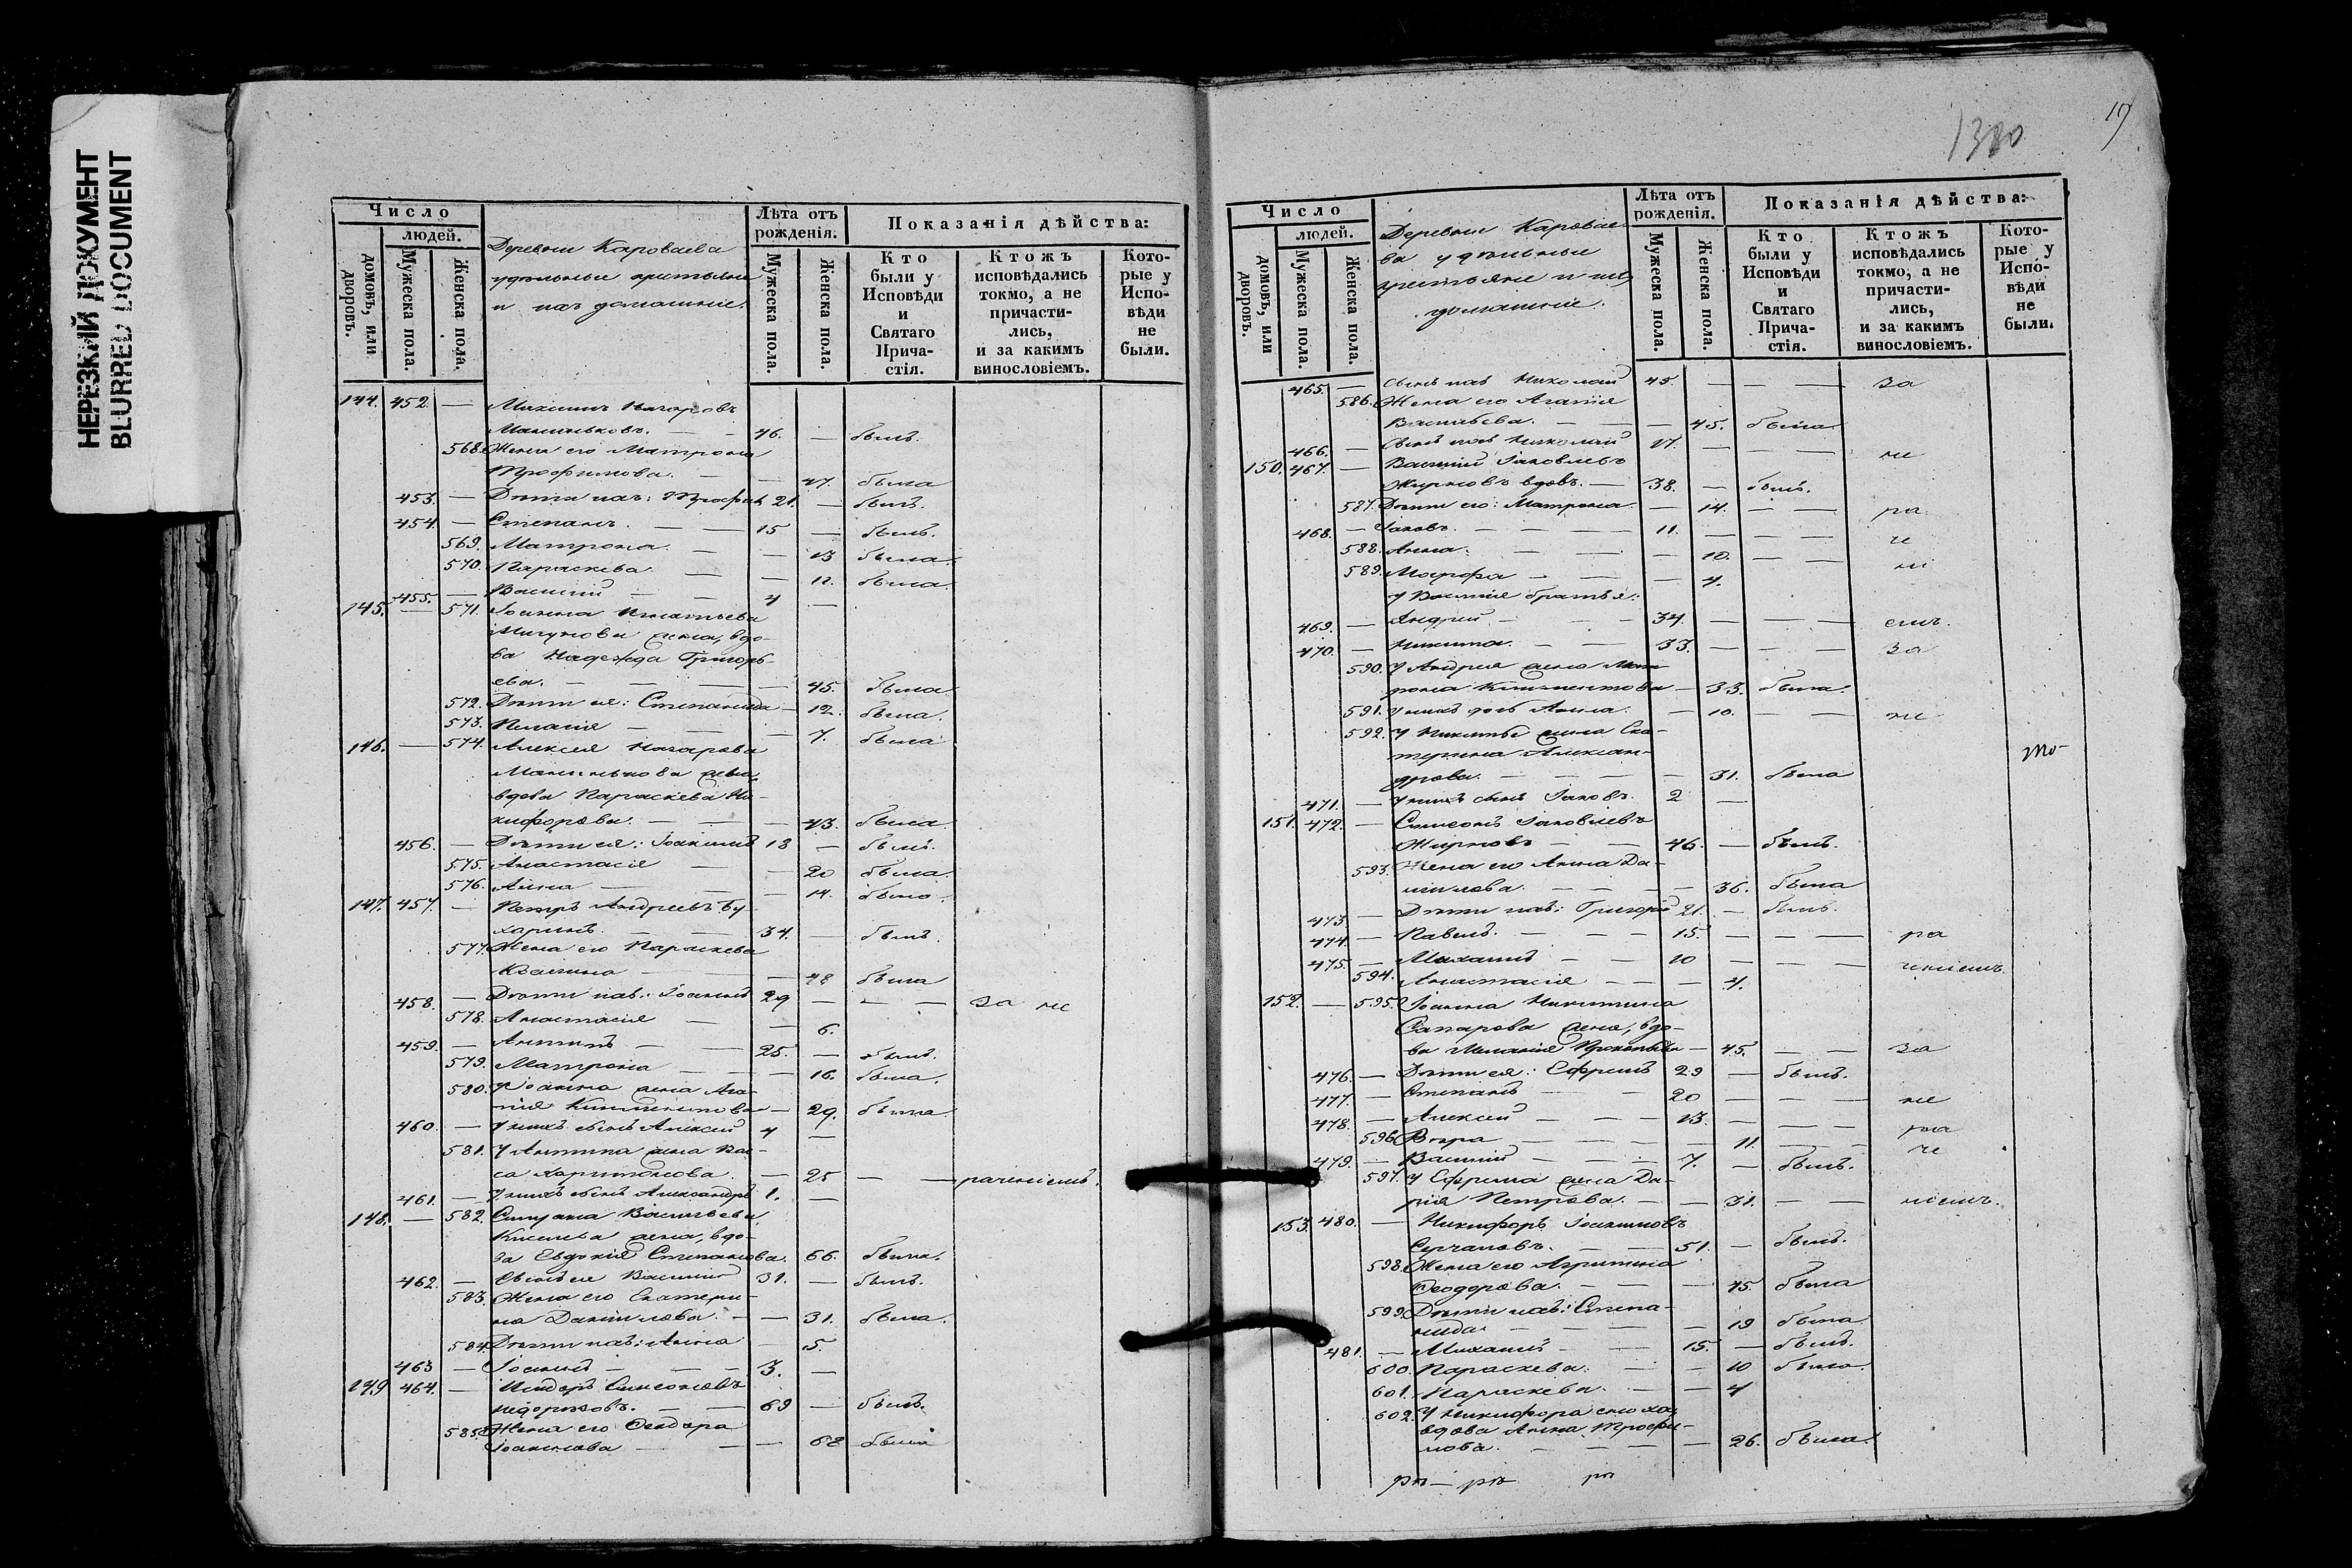 НЕРЕЗКИЙ ДОКУМЕНТ
BLURRED DOCUMENT
Число
людей.
домовъ, или дворовъ.
Мужеска пола.
Женска пола.
Деревни Короваева
удѣльные крестьяне
и ихъ домашніе.
Лѣта отъ рожденія.
Мужеска пола.
Женска пола.
Показанія дѣйства:
Кто были у Исповѣди и Святаго Прича-стія.
Ктожъ исповѣдались токмо, а не причасти-лись, и за какимъ винословіемъ.
Кото-рые у Испо-вѣди не были.
144. 452. —
568. Жена его Матрона
Трофимова. — — 47. была
453. — Дѣти ихъ: 21. — былъ.
454. — Степанъ. — — 15 — былъ.
569. Матрона. — — 13 была.
570. Параскева. — — была.
455. — Василий — — 4 —
145. — 571. Іоанна Игнатьева
жена, вдо-
ва Надежда Григорь-
ева. — — — 45. была
572. Дѣти ея: Степанида — 12. была.
573. Пелагія — — 7. была
146. — 574. Алексея Назарова
жена,
вдова Параскева Ни-
кифорова. — — — 43. была.
456. — Дѣти ея: Іоакимъ 18 — былъ.
575. Анастасія — — 20 была.
576. Анна — — — 14. была.
147. 457. — Петръ Андреевъ Бу-
харинъ. — — 34. — былъ.
577. Жена его Параскева
— — 48 была
458. — Дѣти ихъ: Іоаннъ 29 — — — за не
578. Анастасія — — 6.
459. — Антипъ — — 25. — былъ.
579. Матрона — — — 16. была.
580. У Іоанна жена Ага-
пія Климентова — 29. была.
460. — У нихъ сынъ Алексей 4 —
581. У Антипа жена
Харитонова. — 25 — — раченіемъ.
461. — У нихъ сынъ Александръ 1. —
148. — 582. Васильева
Киселева жена, вдо-
ва Евдокія Степанова. 66. была.
462. — Сынъ ея Василий 31. — былъ.
583. Жена его Екатери-
на Данилова. — — 31. была.
584. Дѣти ихъ: Анна — 5.
463 — Іоаннъ — — — 3. —
149 464. — Симеоновъ
— — 69 — былъ.
585. Жена его Ѳеодора
— — — 68 была
1380
19
Число
людей.
домовъ, или дворовъ.
Мужеска пола.
Женска пола.
Деревни Коровае-
ва удѣльные
крестьяне и ихъ
домашніе.
Лѣта отъ рожденія.
Мужеска пола.
Женска пола.
Показанія дѣйства:
Кто были у Исповѣди и Святаго Прича-стія.
Ктожъ исповѣдались токмо, а не причасти-лись, и за какимъ винословіемъ.
Кото-рые у Испо-вѣди не были.
465. — Сынъ ихъ Николай 45. — — — за
586. Жена его Агапія
Васильева. — — — 45. была.
466. — Сынъ ихъ Николай — — —
150. 467. — Василий Іаковлевъ не
Жирновъ вдовъ. — 38. — былъ.
587. Дѣти его: Матрона. — 14. — — ра
468. — Іаковъ. — — — 11. — — — че
588. Анна. — — — 10. — — ні
589. Марфа — — — 4.
У Василія братья:
469. — Андрей — — — 34. — — — емъ.
470. — Никита. — — 33. — — — за
590. У Андрея жена Мат-
рона Климентова — 33. была.
591. У нихъ дочь Анна. — 10. — — не
592. У Никиты жена Ека-
терина Алексан-
дрова. — — — — 31. была
то-
471. — У нихъ сынъ Іаковъ. 2 —
151. 472. — Симеонъ Іаковлевъ
Жирновъ — — 46. — былъ.
593. Жена его Анна Да-
нилова. — — — — 36. была
473 — Дѣти ихъ: Григорій 21. — былъ.
474. — Павелъ. — — — 15. — — — ра
475. — Михаилъ — — 10 — — — ченіемъ.
594. Анастасія — — — 4.
152. — 595. Іоанна Никитина
жена, вдо-
ва — 45. — — за
476. — Дѣти ея: Ефремъ 29 — былъ.
477. — Степанъ — — 20 — — — не
478. — Алексей — — — 13. — — — ра
596. Вѣра — — — — 11. — — че
479. — Василий — — — 7. — былъ.
597. У Ефрема жена Да-
рія Петрова. — — 31. — — ніемъ.
153. 480. — Никифоръ Іоакимовъ
— — 51. — былъ.
598. Жена его Агрипина
Ѳеодорова. — — — 45. была
599. Дѣти ихъ: Степа-
нида. — — — — 19 была.
481. — Михаилъ — — 15. — былъ.
600. Параскева. — — 10 была.
601. Параскева. — — 4
602. У Никифора сноха,
вдова Анна Трофи-
мова. — — — — 26. была.